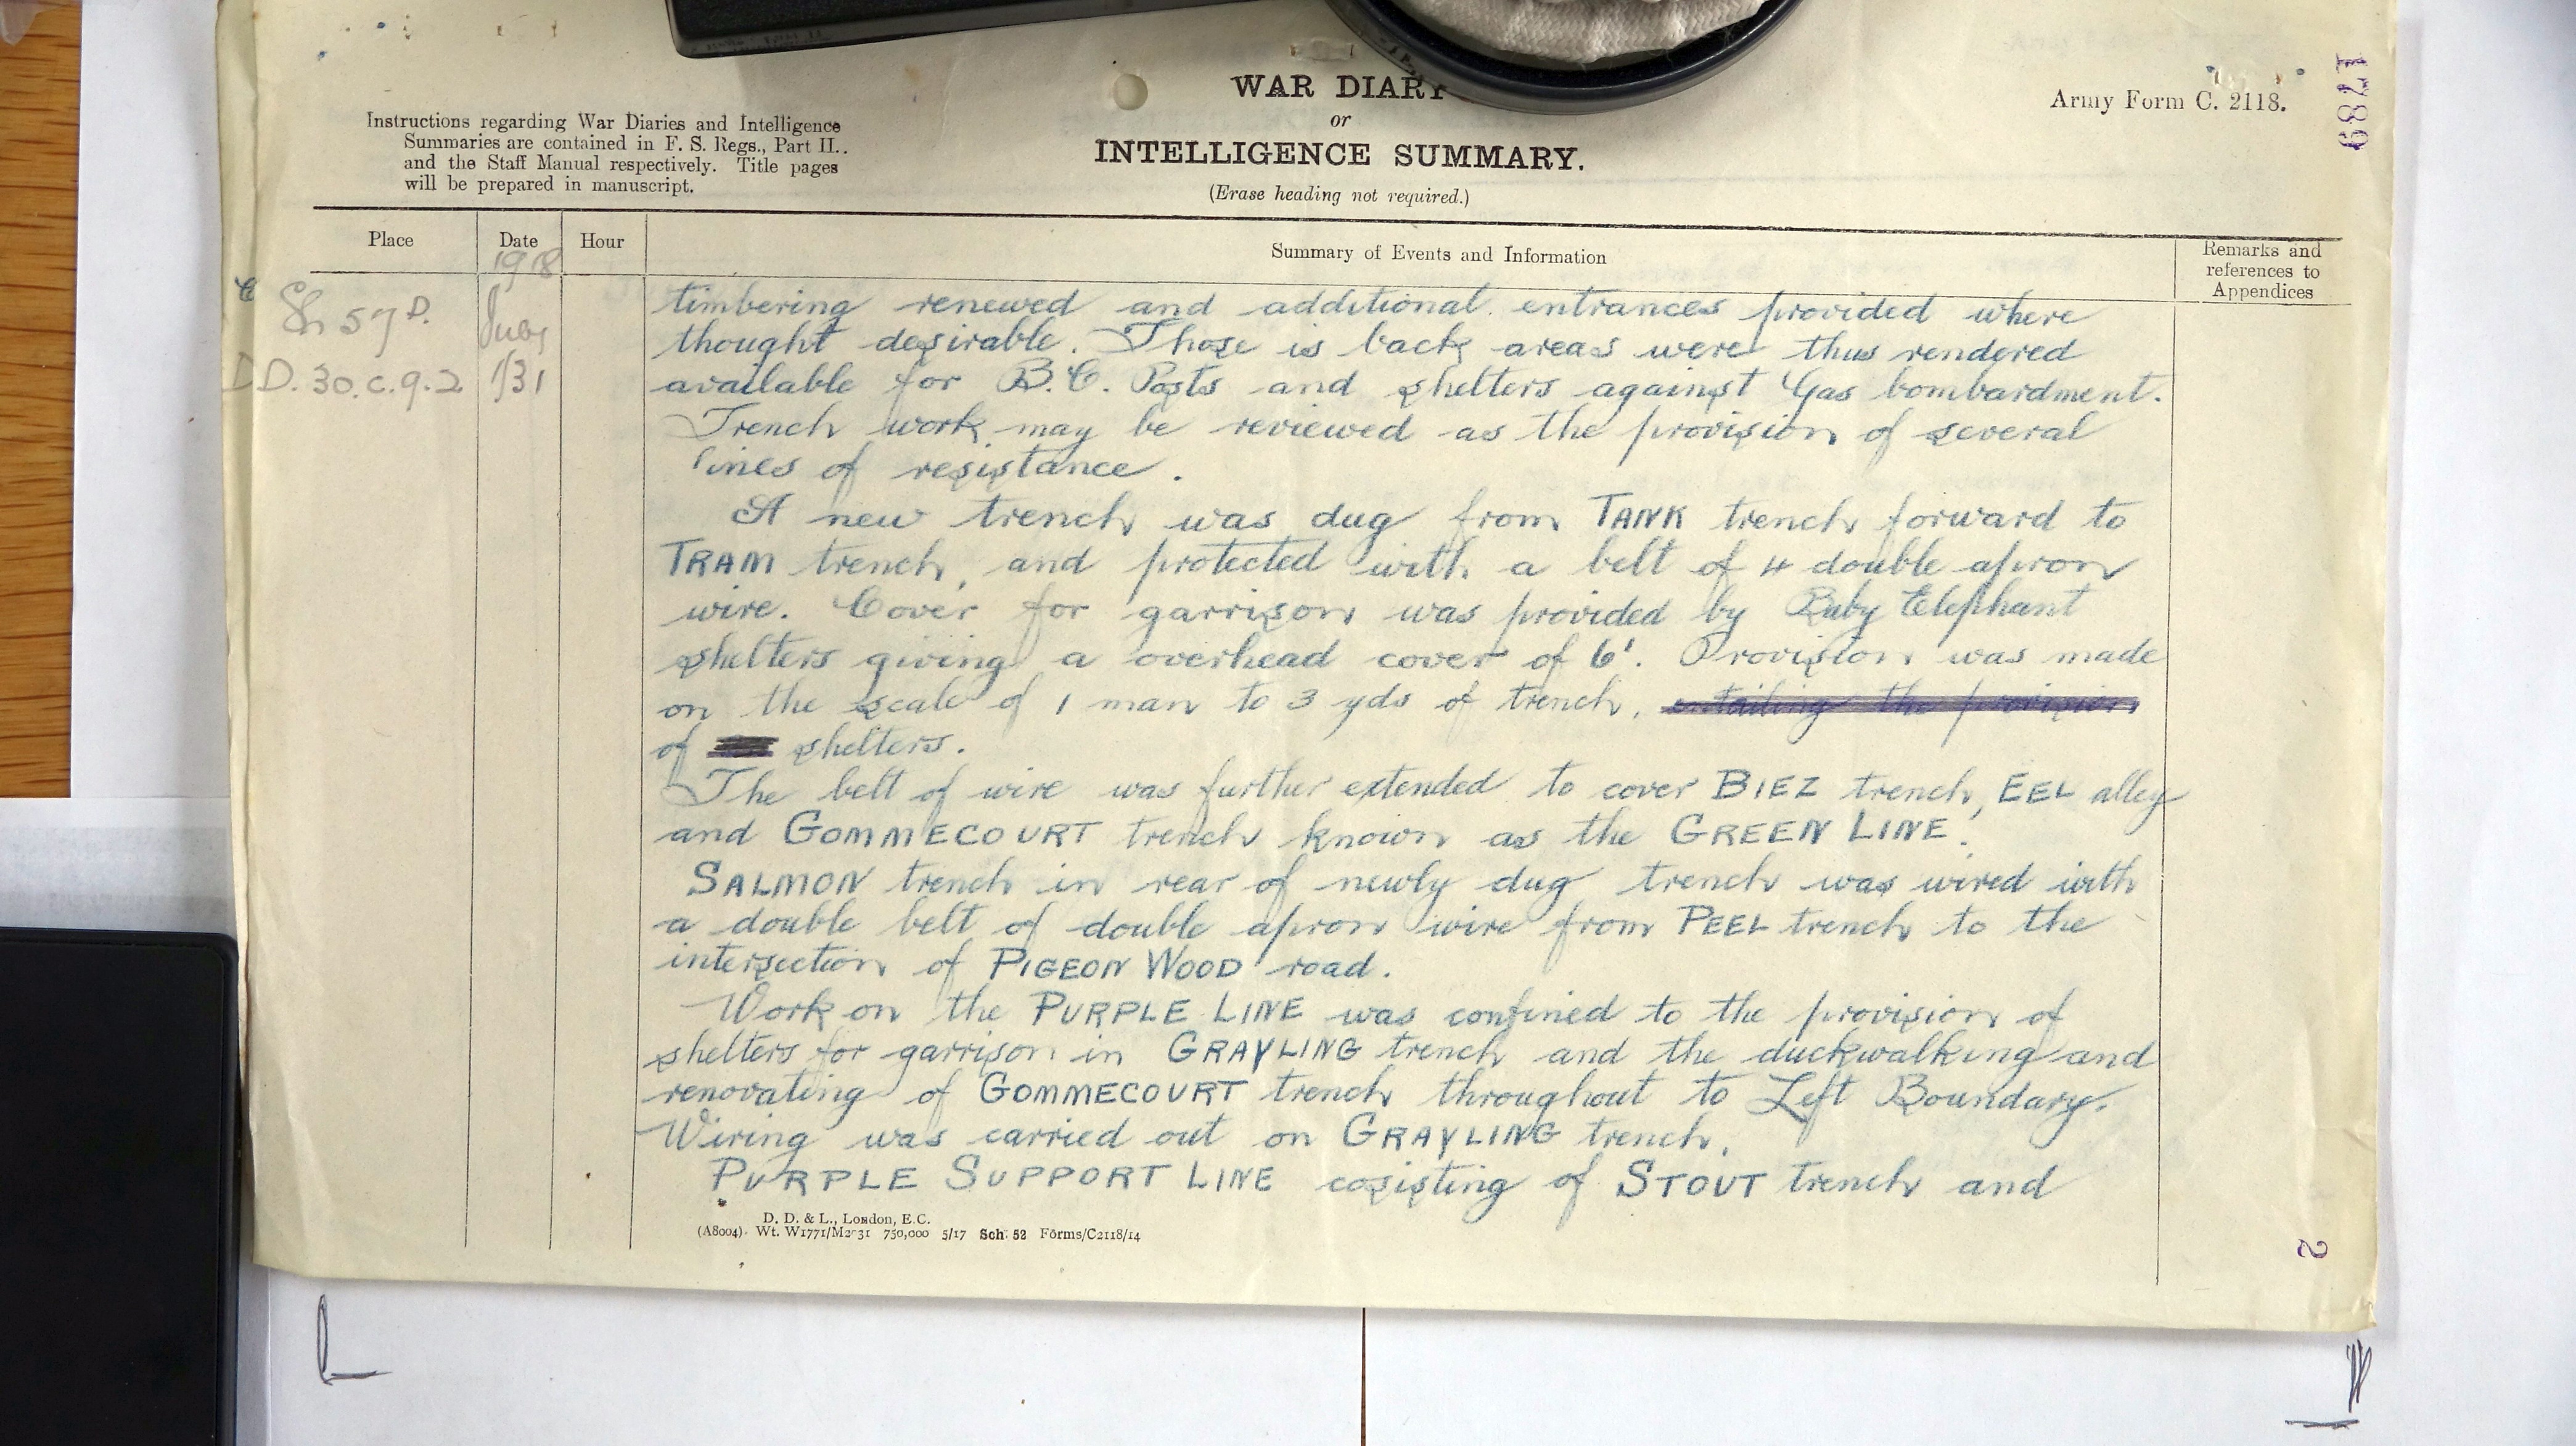 WAR DIARY
or
INTELLIGENCE SUMMARY.
(Erase heading not required.)
Instructions regarding War Diaries and Intelligence
Summaries are contained in F. S. Regs., Part II.
and the Staff Manual respectively. Title pages
will be prepared in manuscript.
Army Form C. 2118.
1789
Place
Date
Hour
Summary of Events and Information
Remarks and
references to
Appendices
1918
Sh 57D.
July
D.30.c.9.2
1/31
timbering renewed and additional entrances provided where
thought desirable. Those is back areas were thus rendered
available for B.C. Posts and shelters against Gas bombardment.
Trench work may be reviewed as the provision of several
lines of resistance.
A new trench was dug from TANK trench forward to
TRAM trench, and protected with a belt of 4 double apron
wire. Cover for garrison was provided by Baby Elephant
shelters giving a overhead cover of 6'. Provision was made
on the scale of 1 man to 3 yds of trench, entailing the provision
of shelters.
The belt of wire was further extended to cover BIEZ trench, EEL alley
and GOMMECOURT trench known as the GREEN LINE.
SALMON trench in rear of newly dug trench was wired with
a double belt of double apron wire from PEEL trench to the
intersection of PIGEON WOOD road.
Work on the PURPLE LINE was confined to the provision of
shelters for garrison in GRAYLING trench and the duckwalking and
renovating of GOMMECOURT trench throughout to Left Boundary.
Wiring was carried out on GRAYLING trench.
PURPLE SUPPORT LINE cosisting of STOUT trench and
D. D. & L., London, E.C.
(A8004). Wt. W1771/M2031 750,000 5/17 Sch. 52 Forms/C2118/14
2